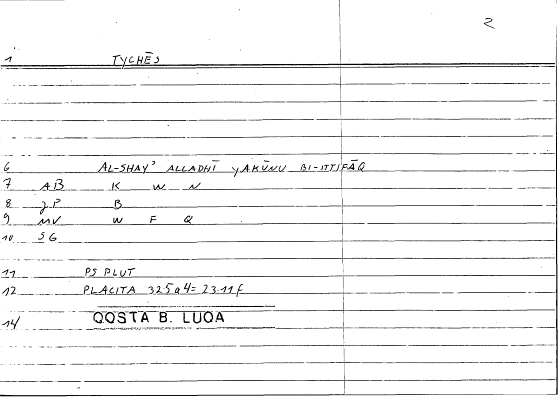 2
1 TYCHĒS
6 AL-SHAY' ALLADHĪ YAKŪNU BI-ITTIFĀQ
7 AB K W N
8 JP B
9 MV W F Q
10 SG
11 PS PLUT
12 PLACITA 325a4= 23.11f
14 QOSTA B. LUQA